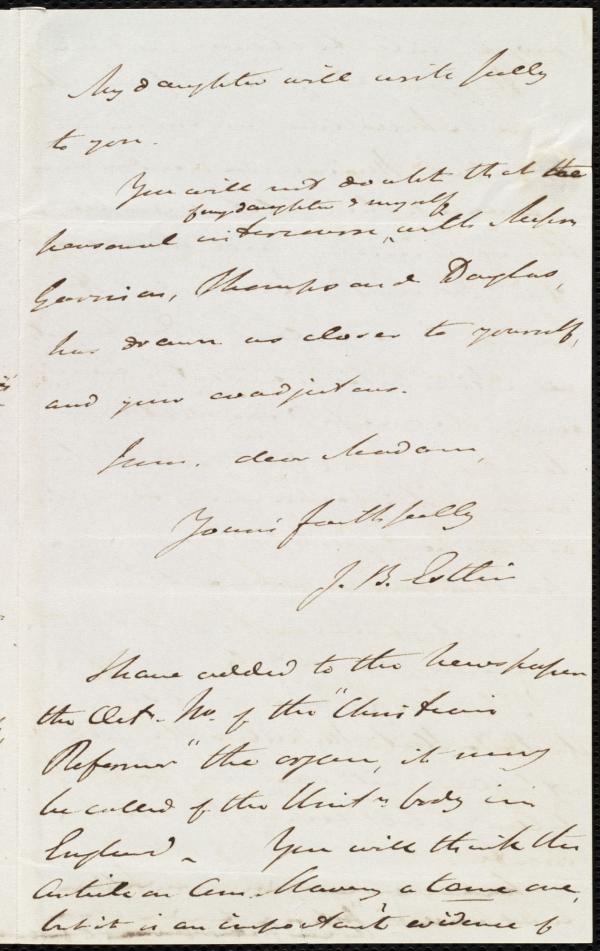 My daughter will write fully
to you.
You will not doubt that the
of my daughter & myself
personal intercourse ^ with Messrs
Garrison, Thompson and Douglas,
has drawn us closer to yourself,
and your coadjutors.
I am, dear Madam,
Yours faithfully
J. B. Estlin
I have added to the newspapers
the Oct. No. of the "Christian
Reformer" the organ, it may
be called of the Unitn body in
England. You will think the
Article on Am. Slavery a tame one,
but it is an important evidence of